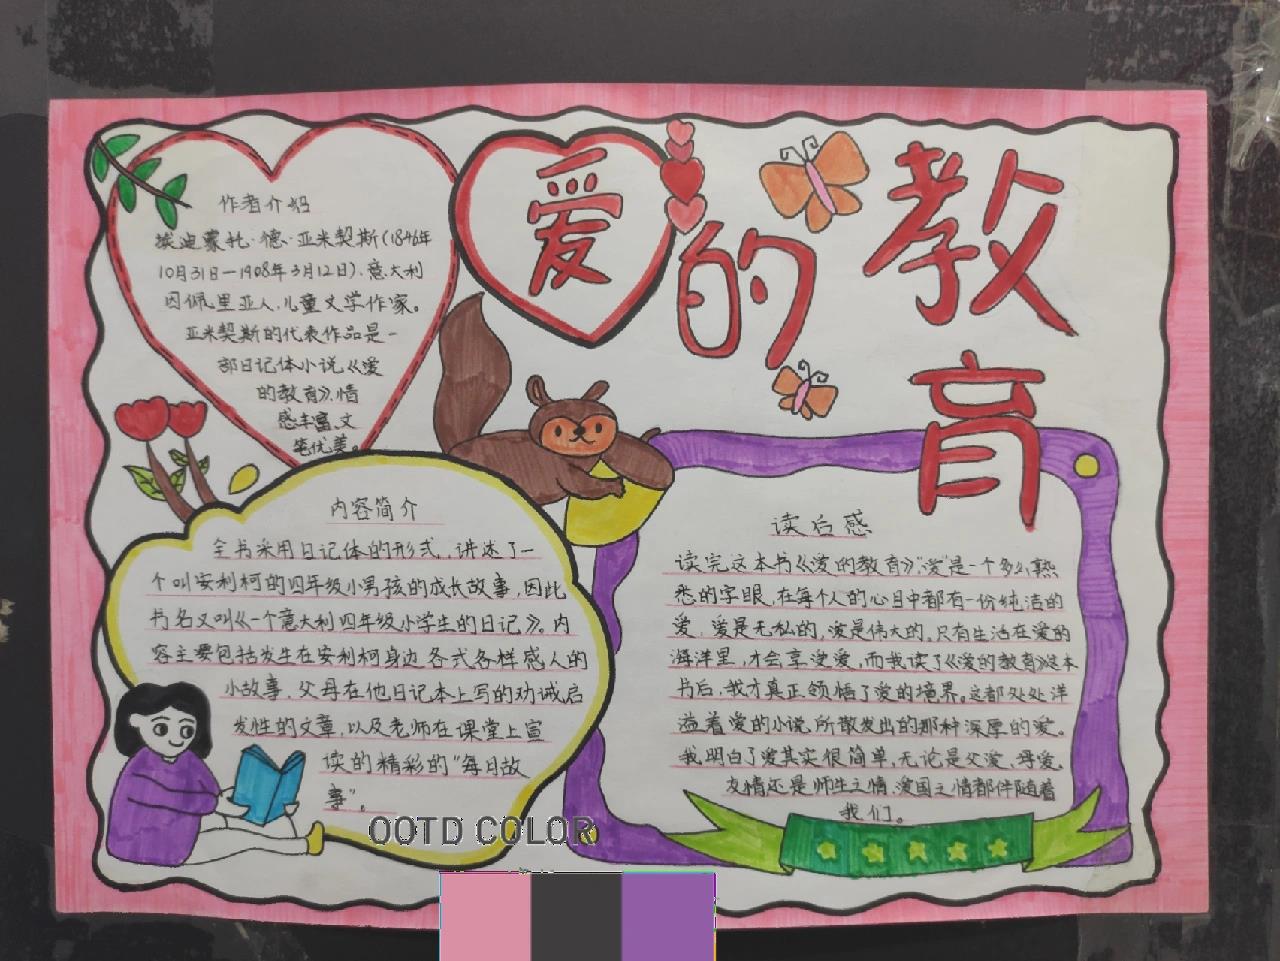 爱的教育
作者介绍
埃迪蒙托·德·亚米契斯(1846年
10月31日—1908年3月12日)、意大利
因佩里亚人,儿童文学作家。
亚米契斯的代表作品是一
部日记体小说《爱
的教育》,情
感丰富、文
笔优美。
内容简介
全书采用日记体的形式,讲述了一
个叫安利柯的四年级小男孩的成长故事,因此
书名又叫《一个意大利四年级小学生的日记》。内
容主要包括发生在安利柯身边各式各样感人的
小故事,父母在他日记本上写的劝诫启
发性的文章,以及老师在课堂上宣
读的精彩的"每日故
事"。
读后感
读完这本书《爱的教育》,"爱"是一个多么熟
悉的字眼,在每个人的心目中都有一份纯洁的
爱,爱是无私的,爱是伟大的,只有生活在爱的
海洋里,才会享受爱,而我读了《爱的教育》这本
书后,我才真正领悟了爱的境界。这都处处洋
溢着爱的小说,所散发出的那种深厚的爱。
我明白了爱其实很简单,无论是父爱、母爱、
友情还是师生之情、爱国之情都伴随着
我们。
OOTD COLOR